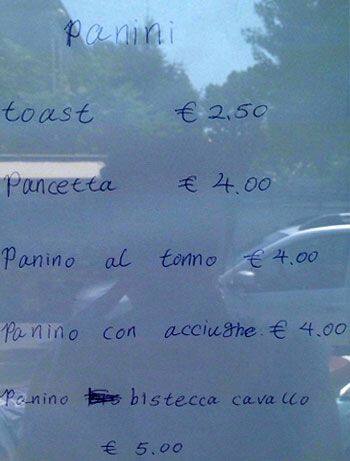 Panini
toast € 2,50
Pancetta € 4.00
Panino al tonno € 4.00
Panino con acciughe. € 4.00
Panino bistecca cavallo
€ 5.00